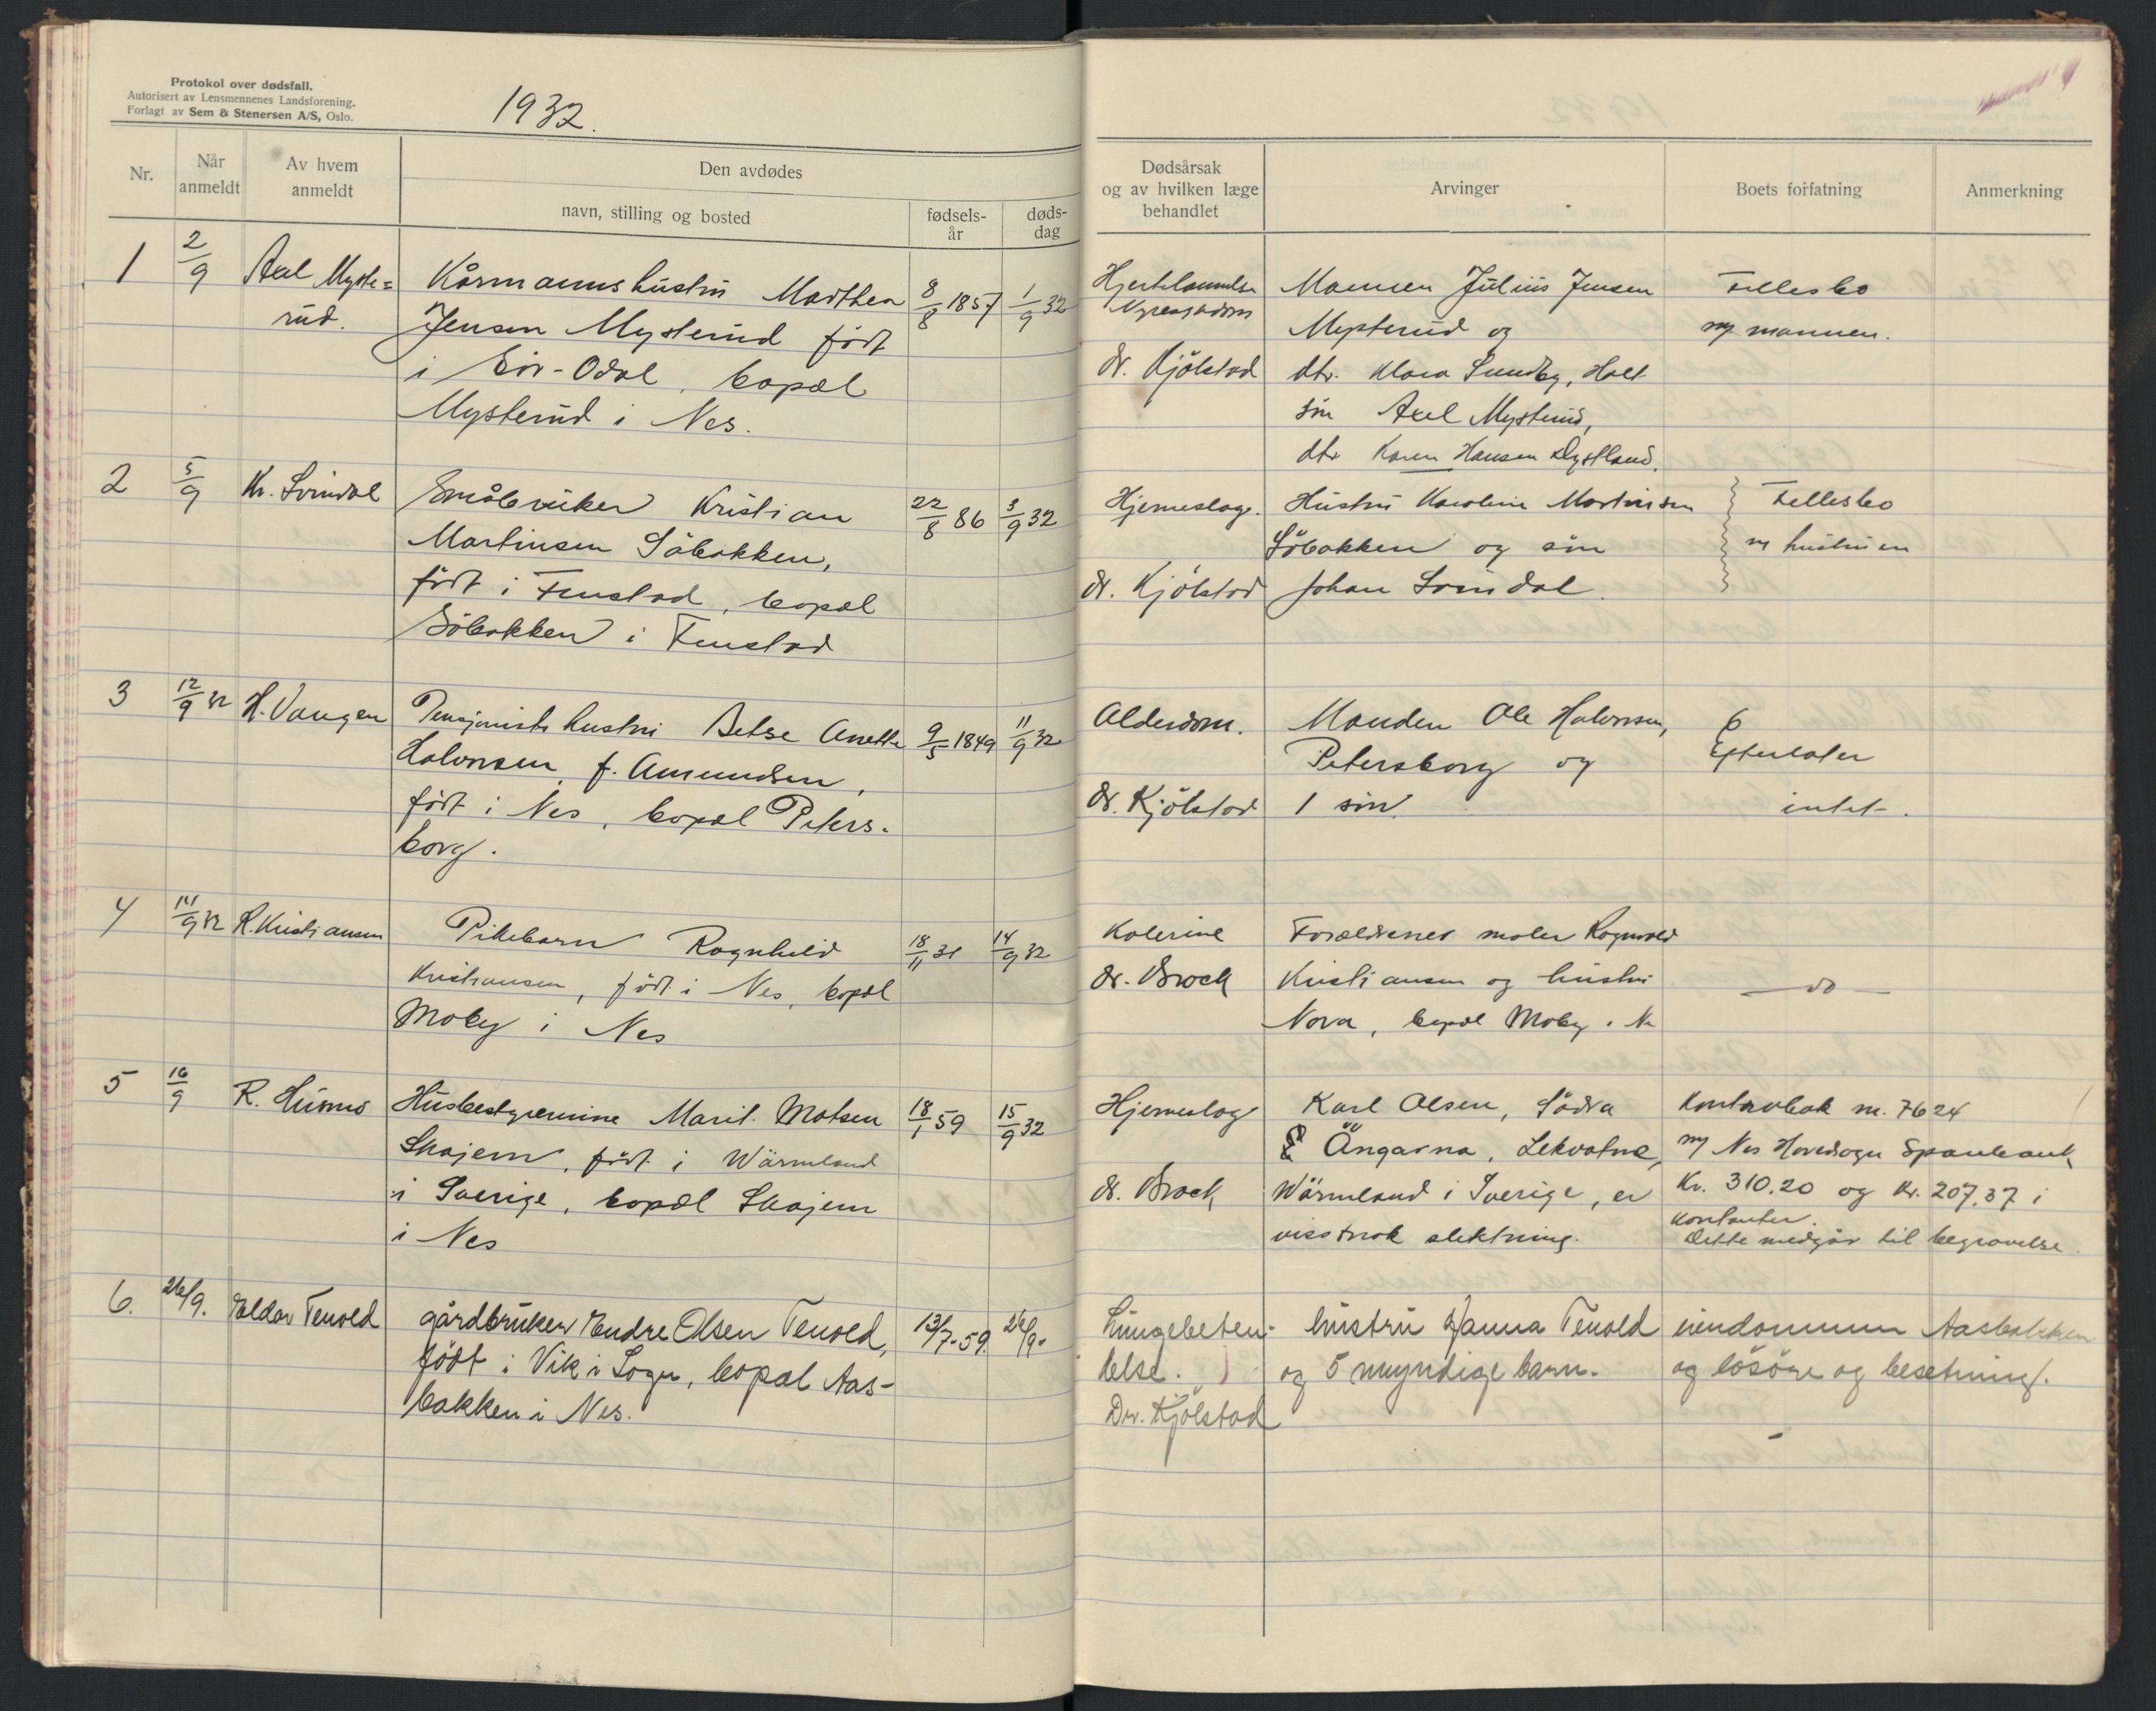 Protokol over dødsfall.
Autorisert av Lensmennenes Landsforening.
Forlagt av Sem & Stenersen A/S, Oslo.
1932.
Nr.
Når anmeldt
Av hvem anmeldt
Den avdødes
navn, stilling og bosted
fødsels-år
døds-dag
Dødsårsak
og av hvilken læge
behandlet
Arvinger
Boets forfatning
Anmerkning
1
2/9
Axel Myste=
rud.
Kårmannshustru Marthea
Jensen Mysterud født
i Sør-Odal, bopæl
Mysterud i Nes.
8/8 1857
1/9 32
Hjertelammelse
Nyresykdom
dr. Kjölstad
Mannen Julius Jensen
Mysterud og
dtr. Klara Sundby, Holt
sön Axel Mysterud,
dtr Karen Hansen Dystland.
Fellesbo
m/ mannen.
2
5/9
Kr. Svindal
Småbruker Kristian
Martinsen Söbakken,
født i Fenstad, bopæl
Söbakken i Fenstad
22/8 86
3/9 32
Hjerneslag.
dr. Kjölstad
Hustru Karoline Martinsen
Söbakken og sön
Johan Svindal.
Fellesbo
m/ hustruen
3
12/9 32
H. Vangen
Pensjonists hustru Betse Anette
Halvorsen, f. Amundsen,
født i Nes, bopæl Peters-
borg.
9/5 1849
11/9 32
Alderdom.
dr. Kjölstad
Manden Ole Halvorsen,
Petersborg og
1 sön.
Efterlater
intet.
4
14/9 32
R. Kristiansen
Pikebarn Ragnhild
Kristiansen, født i Nes, bopæl
Moby i Nes
18/11 31
14/9 32
Kolerine
dr. Brock
Forældrenes maler Ragnvald
Kristiansen og hustru
Nora, bopæl Moby i N
— do —
5
16/9
R. Humo
Husbestyrerinne Marit Matsen
Skajem, født i Wärmland
i Sverige, bopæl Skajem
i Nes
18/1 59
15/9 32
Hjerneslag
dr. Brock
Karl Olsen, Södra
Ängarna, Lekvatne,
Wärmland i Sverige, er
visstnok slektning.
Kontrabok nr. 7624
m/ Nes Hovedsogn Sparebank
Kr. 310.20 og kr. 207.37 i
kontanter.
Dette medgår til begravelse.
6.
26/9.
Eldar Tenold
gårdbruker Endre Olsen Tenold,
födt i Vik i Sogn, bopæl Aas-
bakken i Nes.
13/7-59.
26/9-
Lungebeten-
nelse.
Dr. Kjölstad
hustru Hanna Tenold
og 5 myndige barn.
eiendommen Aasbakken
og lösöre og besetning.